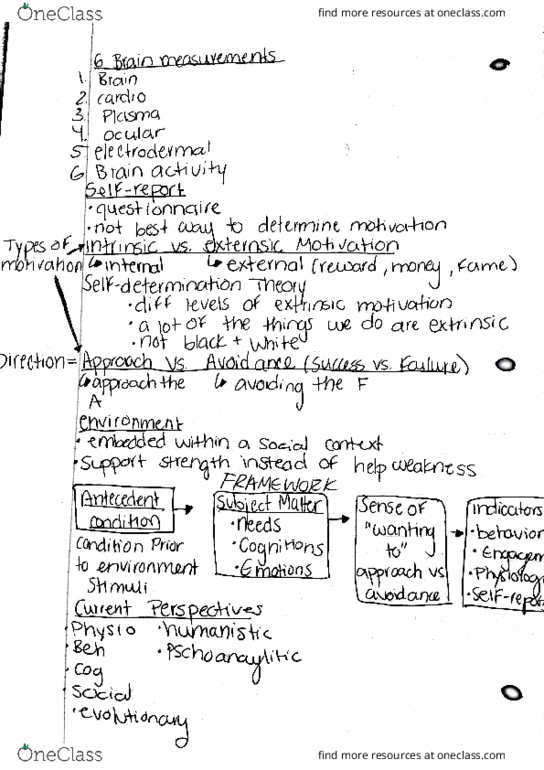 OneClass
find more resources at oneclass.com
6 Brain measurements
1. Brain
2. cardio
3. Plasma
4. ocular
5 electrodermal
6 Brain activity
Self-report
• questionnaire
• not best way to determine motivation
Types of motivation
Intrinsic vs. externsic Motivation
↳ internal ↳ external (reward, money, fame)
Self-determination Theory
• diff levels of extrinsic motivation
• a lot of the things we do are extrinsic
• not black + white
Direction = Approach vs. Avoidance (Success vs. Failure)
↳ approach the A ↳ avoiding the F
environment
• embedded within a social context
• Support strength instead of help weakness
FRAMEWORK
Antecedent condition
Condition Prior to environment Stimuli
Subject Matter
• Needs
• Cognitions
• Emotions
Sense of "wanting to" approach vs avoidance
indicators
• behavior
• Engagem
• Physiolog
• Self-repo
Current Perspectives
• Physio • humanistic
• Beh • Pschoanaylitic
• Cog
• Social
• evolutionary
OneClass
find more resources at oneclass.com